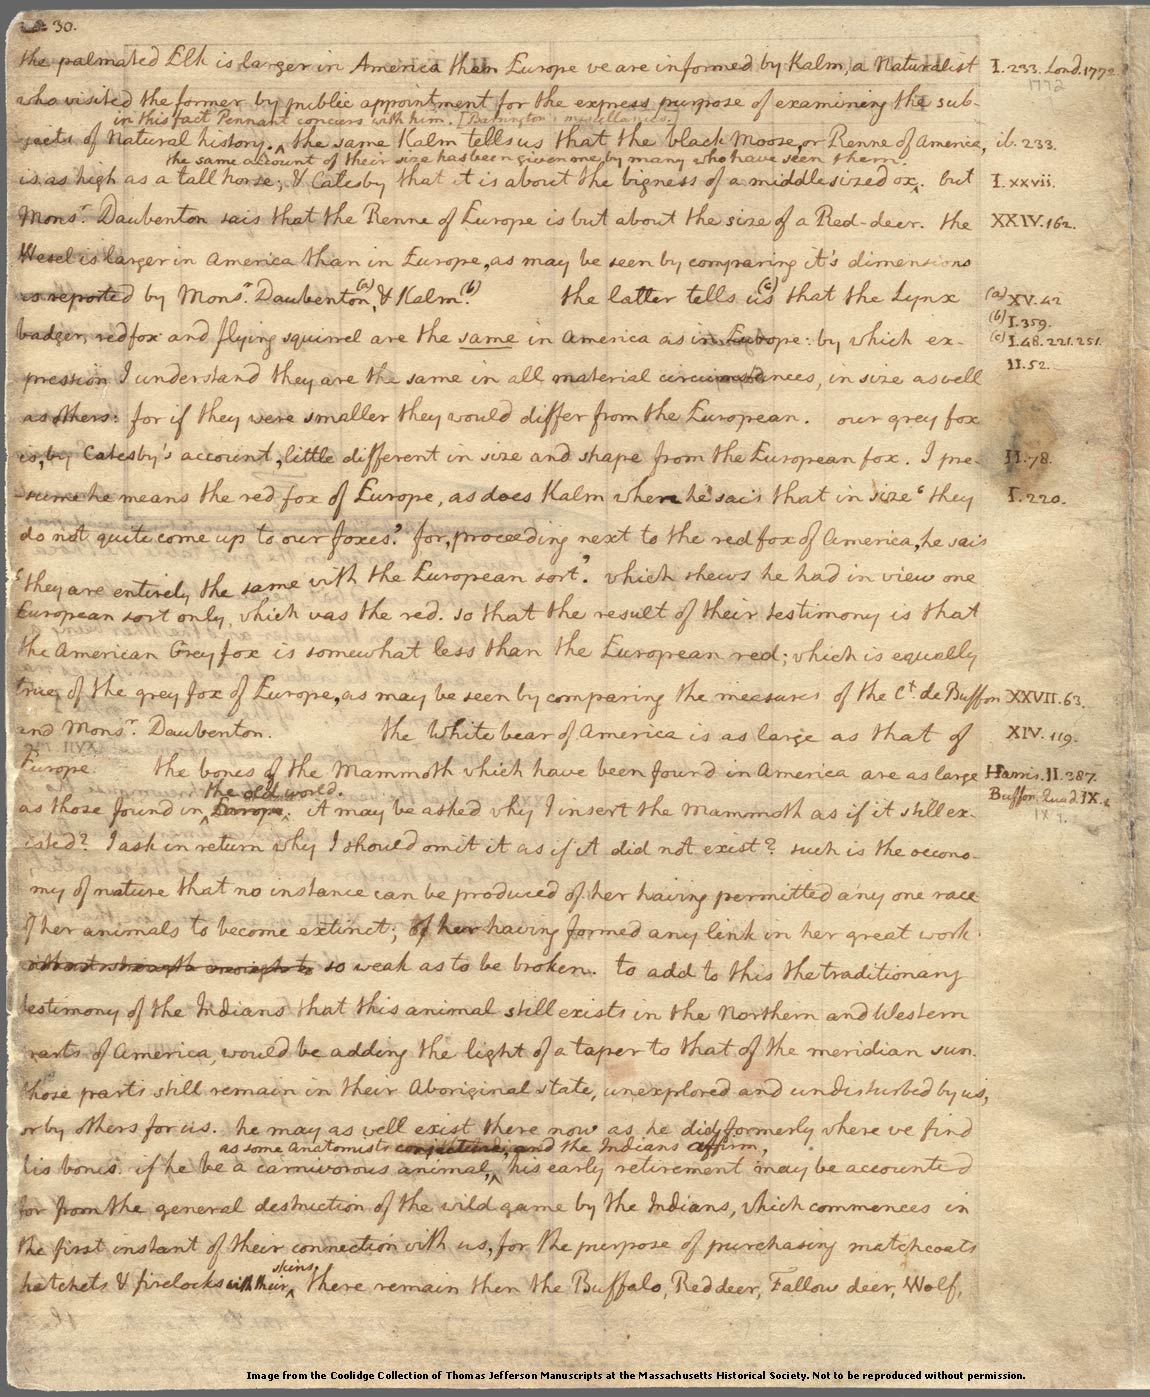 30.
the palmated Elk is larger in America than Europe we are informed by Kalm, a Naturalist I.233. Lond. 1772.
1772
who visited the former by public appointment for the express purpose of examining the sub-
in this fact Pennant concurs with him. [Barrington's miscellanies.]
jects of Natural history. ^ the same Kalm tells us that the black Moose, or Renne of America, ib. 233.
the same account of their size has been given one, by many who have seen them.
is as high as a tall horse; & Catesby that it is about the bigness of a middle sized ox^. but I.xxvii.
Monsr. Daubenton sais that the Renne of Europe is but about the size of a Red-deer. the XXIV.162.
Wesel is larger in America than in Europe, as may be seen by comparing it's dimensions
as reported by Monsr. Daubenton,(a) & Kalm.(b) the latter tells us(c) that the Lynx (a) XV.42
(b) I.359.
badger, red fox and flying squirrel are the same in America as in Europe: by which ex- (c) I.48.221.251.
II.52.
pression I understand they are the same in all material circumstances, in size as well
as others: for if they were smaller they would differ from the European. our grey fox
is, by Catesby's account, little different in size and shape from the European fox. I pre- II.78.
sume he means the red fox of Europe, as does Kalm where he sais that in size ‘they I.220.
do not quite come up to our foxes.’ for, proceeding next to the red fox of America, he sais
‘they are entirely the same with the European sort’. which shews he had in view one
European sort only, which was the red. so that the result of their testimony is that
the American Grey fox is somewhat less than the European red; which is equally
true of the grey fox of Europe, as may be seen by comparing the measures of the Ct. de Buffon XXVII.63.
and Monsr. Daubenton. the White bear of America is as large as that of XIV.119.
Europe. the bones of the Mammoth which have been found in America are as large Harris.II.387.
the old world. Buffon. Quad. IX.
as those found in ^ Europe. it may be asked why I insert the Mammoth as if it still ex-
isted? I ask in return why I should omit it as if it did not exist? such is the oecono-
my of nature that no instance can be produced of her having permitted any one race
of her animals to become extinct; of her having formed any link in her great work
so weak as to be broken. to add to this the traditionary
testimony of the Indians that this animal still exists in the Northern and Western
parts of America, would be adding the light of a taper to that of the meridian sun.
those parts still remain in their Aboriginal state, unexplored and undisturbed by us,
or by others for us. he may as well exist there now as he did formerly where we find
as some anatomists conjecture, and the Indians affirm,
his bones. if he be a carnivorous animal, ^ his early retirement may be accounted
for from the general destruction of the wild game by the Indians, which commences in
the first instant of their connection with us, for the purpose of purchasing matchcoats
skins.
hatchets & firelocks with their ^ there remain then the Buffalo, Red deer, Fallow deer, Wolf,
Image from the Coolidge Collection of Thomas Jefferson Manuscripts at the Massachusetts Historical Society. Not to be reproduced without permission.